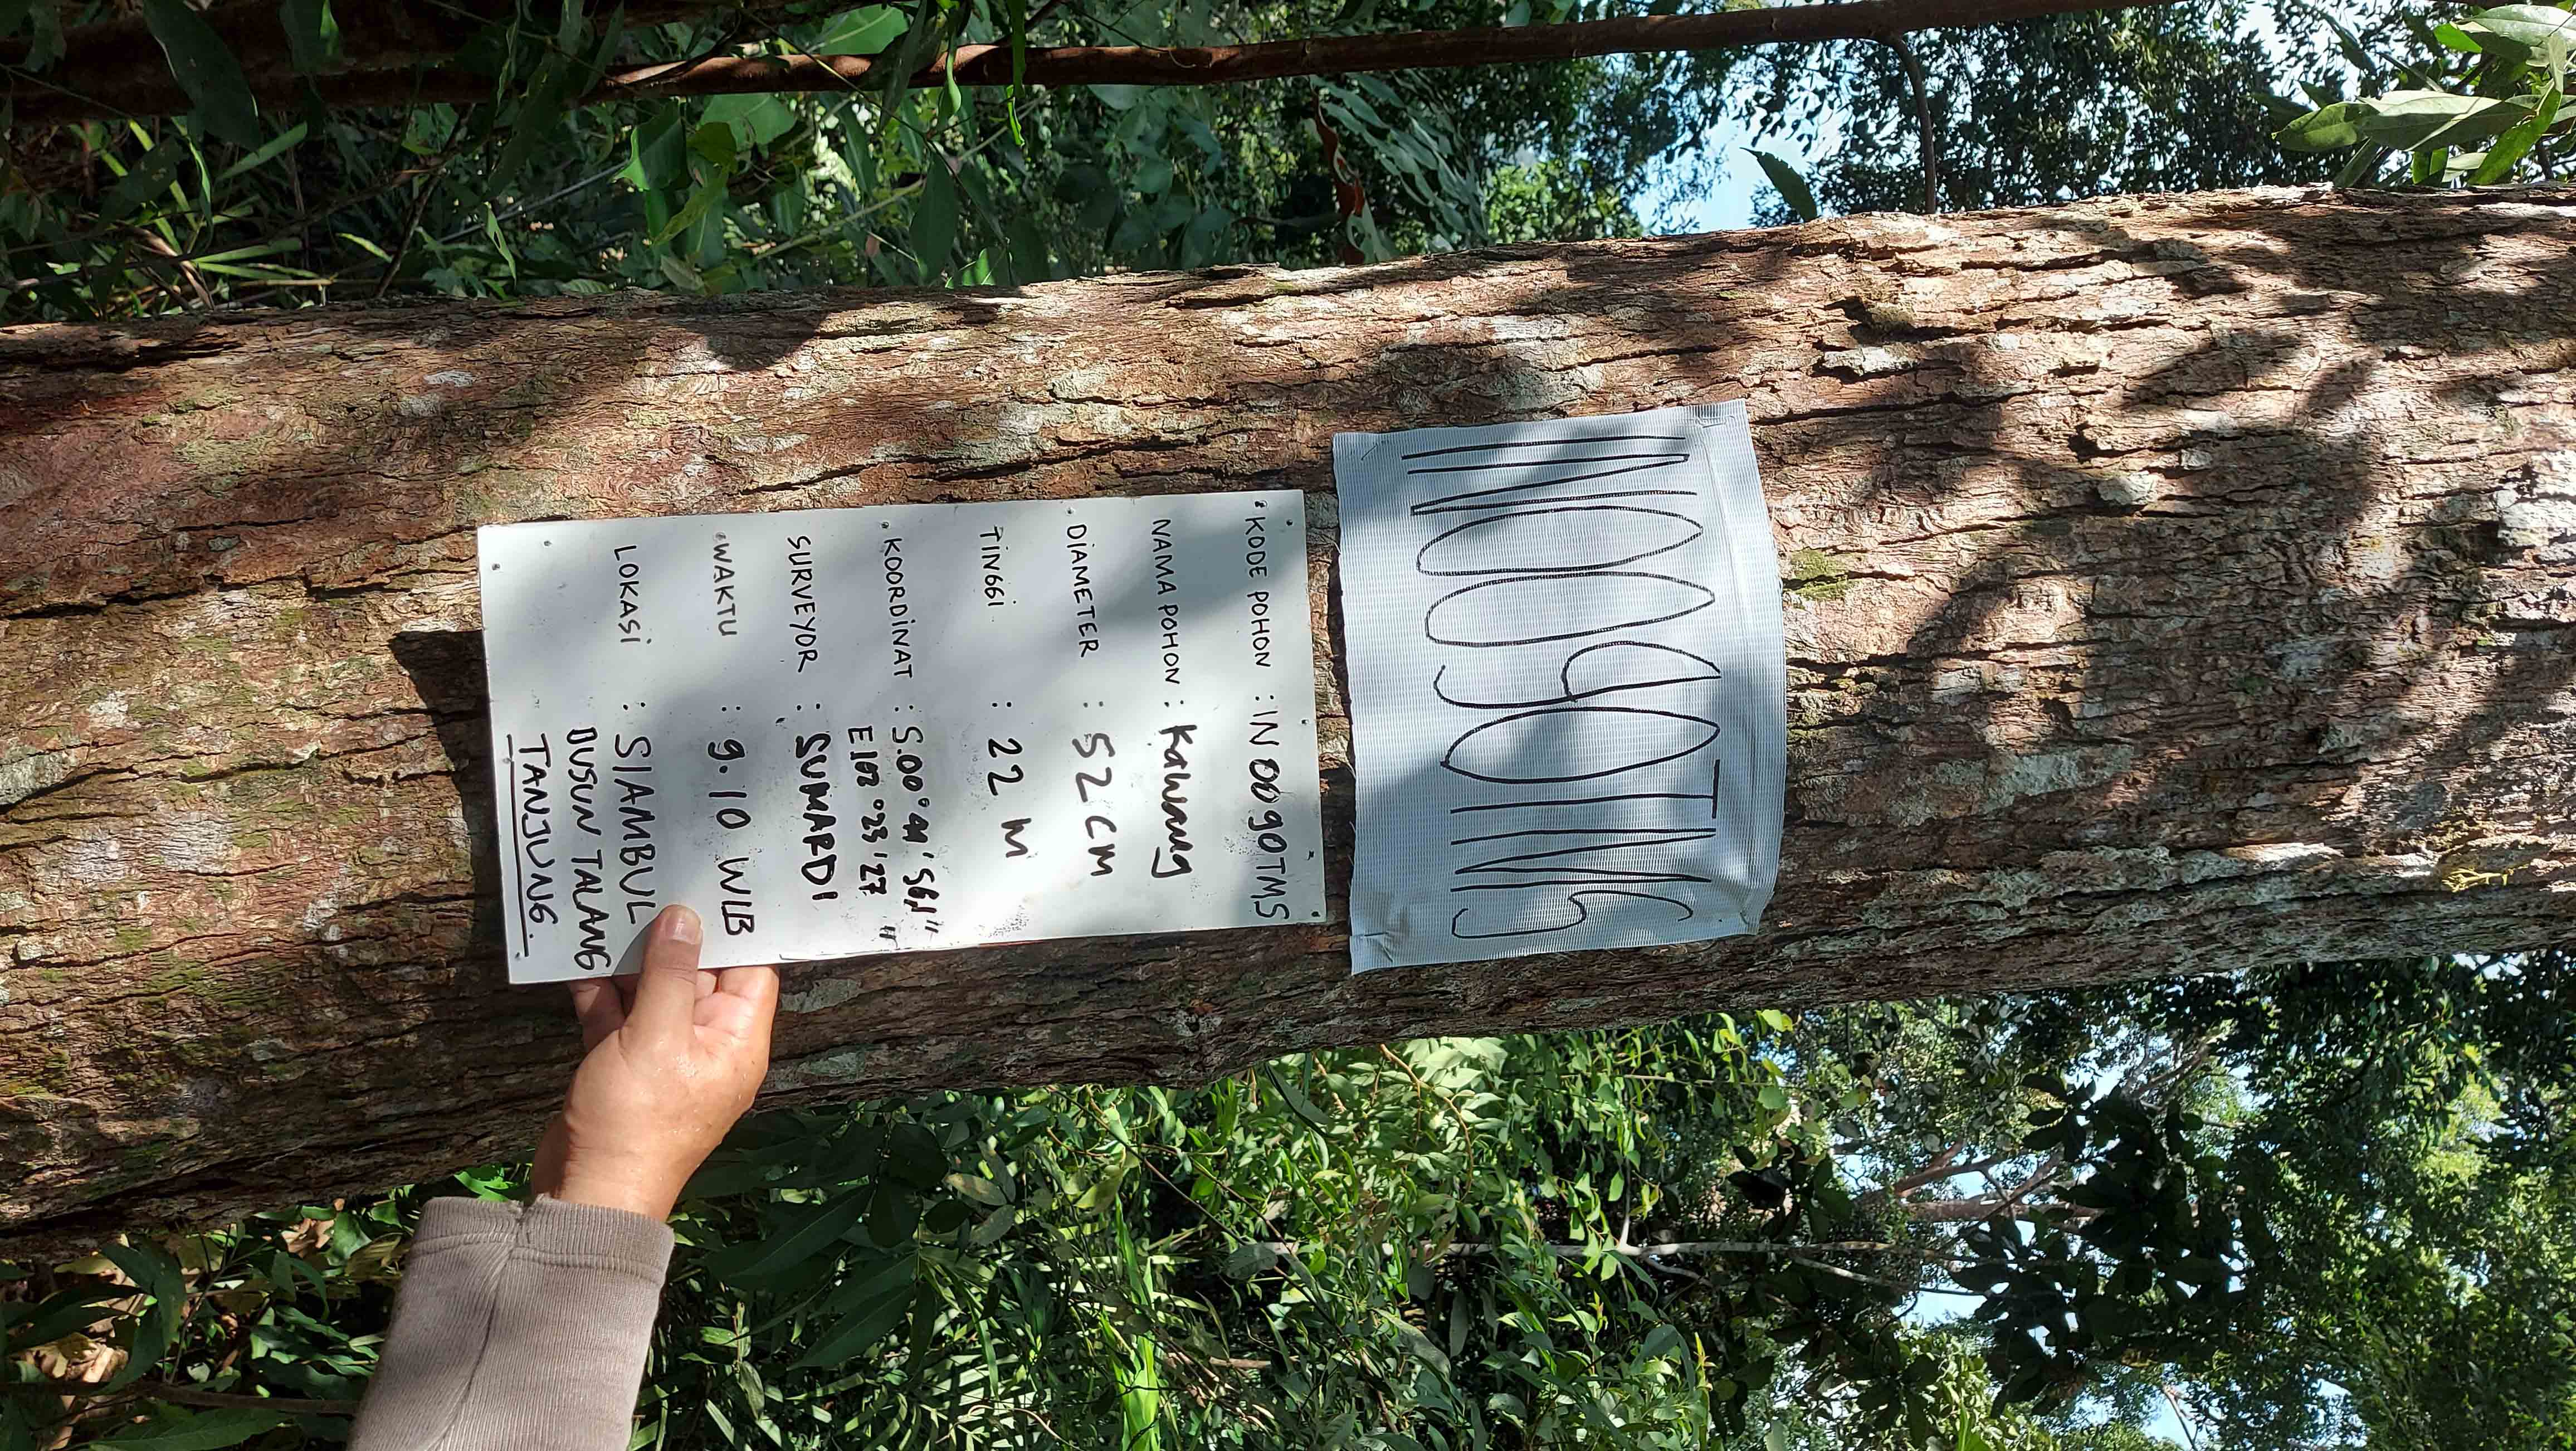 IN0090TMS
KODE POHON : IN0090TMS
NAMA POHON : Kawang
DIAMETER : 52 CM
TINGGI : 22 M
KOORDINAT : S.00°41'561"
E102°23'27"
SURVEYOR : SUMARDI
WAKTU : 9.10 WIB
LOKASI : SIAMBUL
DUSUN TALANG
TANJUNG.